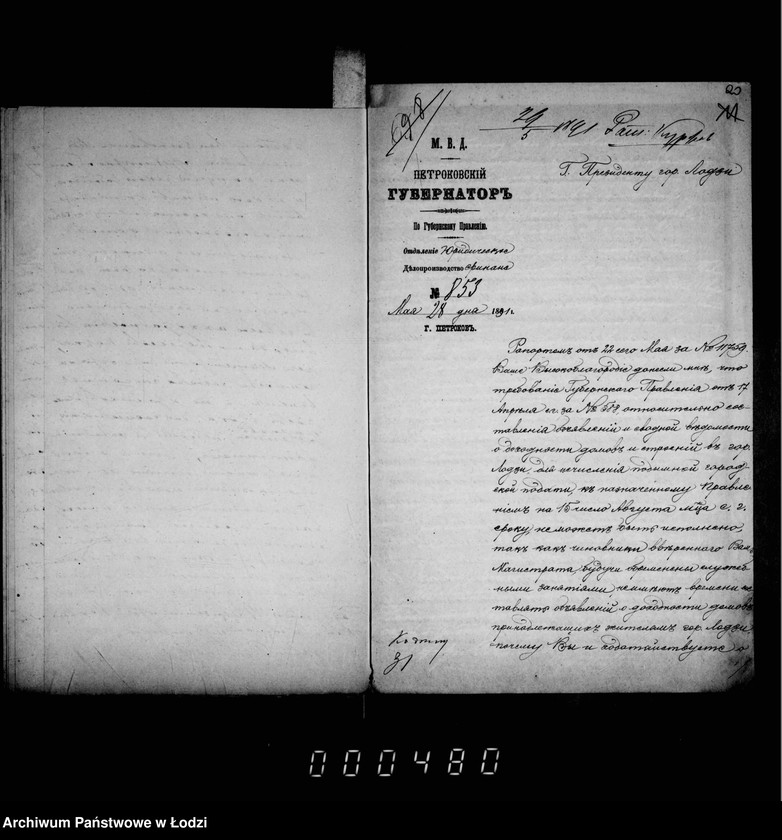 20
698
29/5 1891
М. В. Д.
ПЕТРОКОВСКІЙ
ГУБЕРНАТОРЪ
По Губернскому Правленію.
Отдѣленіе Юридическое
Дѣлопроизводство
№ 853
Мая 28 дня 1891 г.
Г. ПЕТРОКОВЪ.
Г. Президенту гор. Лодзи
Рапортомъ отъ 22 сего Мая за № 11759.
Ваше Высокоблагородіе донесли мнѣ, что
требованіе Губернского Правленія отъ 17
Апрѣля с.г. за № относительно сос-
тавленія объявленій и сводной вѣдомости
о доходности домовъ и строеній въ гор.
Лодзи, для исчисленія подымной город
ской подати, къ назначенному Правле
ніемъ на 15 число Августа м-ца с. г.
сроку, не можетъ быть исполнено,
такъ какъ чиновники ввѣреннаго Вам
Магистрата, будучи обременены служеб
ными занятіями не имѣютъ времени сос
тавлять объявленій о доходности домовъ
принадлежащихъ жителямъ гор. Лодзи
почему Вы и ходатайствуете о
Къ чину
31
000480
Archiwum Państwowe w Łodzi